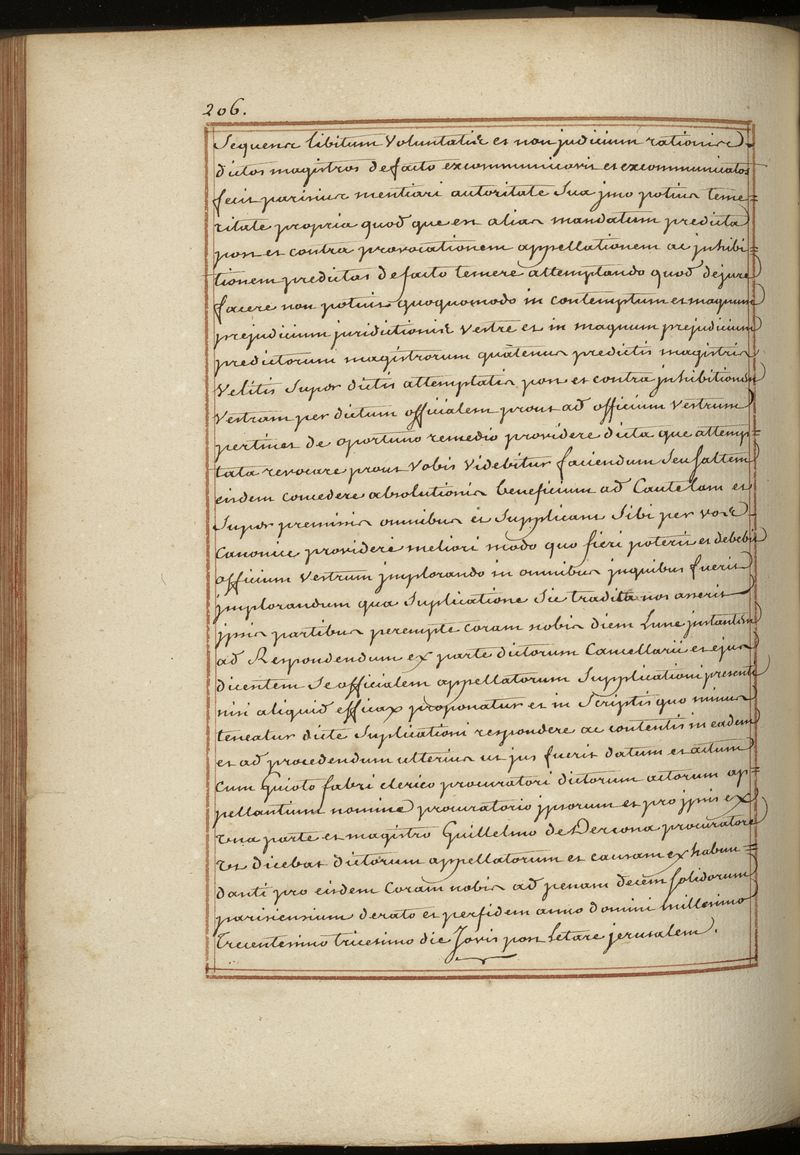 206.
Sequens libitum Voluntatis et non judicium rationis
dictos magistros defacto excommunicavit et excommunicatos
fecit parisius mentiari autoritate Sua jmo potius teme=
ritate propria quod que est alias mandatum predicta
post et contra provocationem appellationem ac jnhibi=
tionem predictas defacto temere attemptando quod dejure
facere non potuit quoquomodo in contemptum et magnum
prejudicium juridictionis Vestre et in magnum prejudicium
predictorum magistrorum quatenus predictis magistris
Velitis Super dictis attemptatis post et contra jnhibitionem
Vestram per dictum officialem prout ad officium Vestrum
pertinet de oportuno remedio providere dicta que attemp=
tata revocare prout Vobis Videbitur faciendum Seu Saltem
eisdem concedere absolutionis beneficium ad Cautelam et
Super premissis omnibus et Supplicant Sibi per vos
Canonice provideri meliori modo quo fieri poterit et debebit
officium Vestrum jmplorando in omnibus jnquibus fuerit
jmplorandum qua Suplicatione Sic tradita nos asserit
jpsis partibus perempte coram nobis diem Lune jnstantem
ad Respondendum ex parte dictorum Cancellarii et ejus
dicentem Se officialem appellatorum Supplicationi presenti
nisi aliquid efficax proponatur et in Scriptis quo minus
teneatur dicte Suplicationi respondere ac contentis in eadem
et ad procedendum ulterius ut jus fuerit datum et actum
Cum Guioto fabri clerico procuratori dictorum actorum ap=
pellantium nomine procuratorio jpsorum et pro jpsis ex
Una parte et magistro Guillelmo de Dercona procuratore
Ut dicebat dictorum appellatorum et causam ex habun=
danti pro eisdem Coram nobis ad penam decem Solidorum
parisiensium de rato et perfidem anno domini millesimo
trecentesimo tricesimo die Jovis post Letare jerusalem.